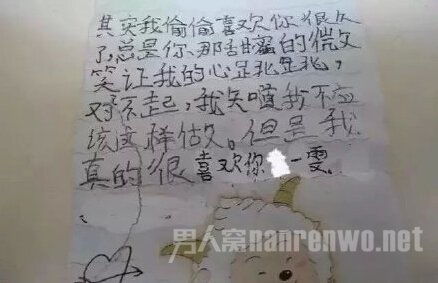 其实我偷偷喜欢你很久
了,总是你、那甜蜜的微
笑让我的心
对不起,我知道我不应
该这样做。但是我
真的很喜欢你 一雯.
男人窝nanrenwo.net